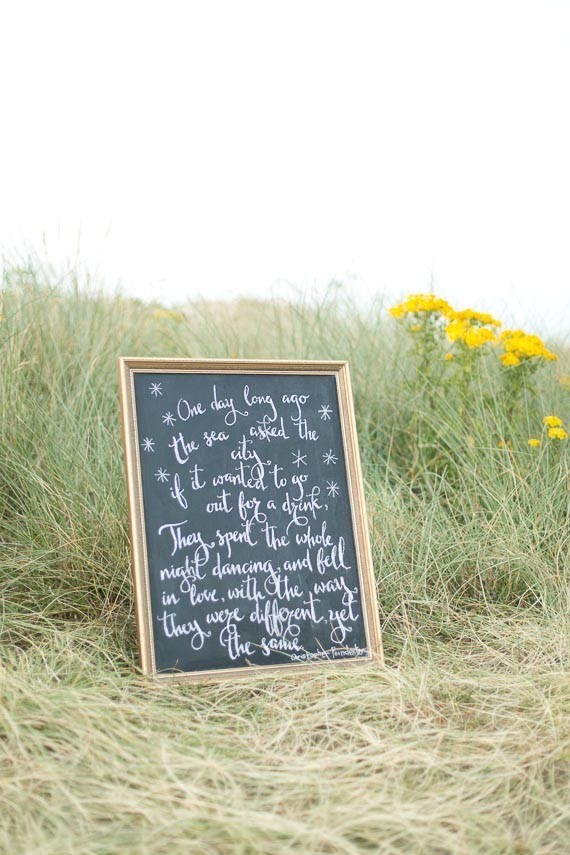 One day long ago
the sea asked the
city
if it wanted to go
out for a drink,
They spent the whole
night dancing, and fell
in love, with the way
they were different, yet
the same.